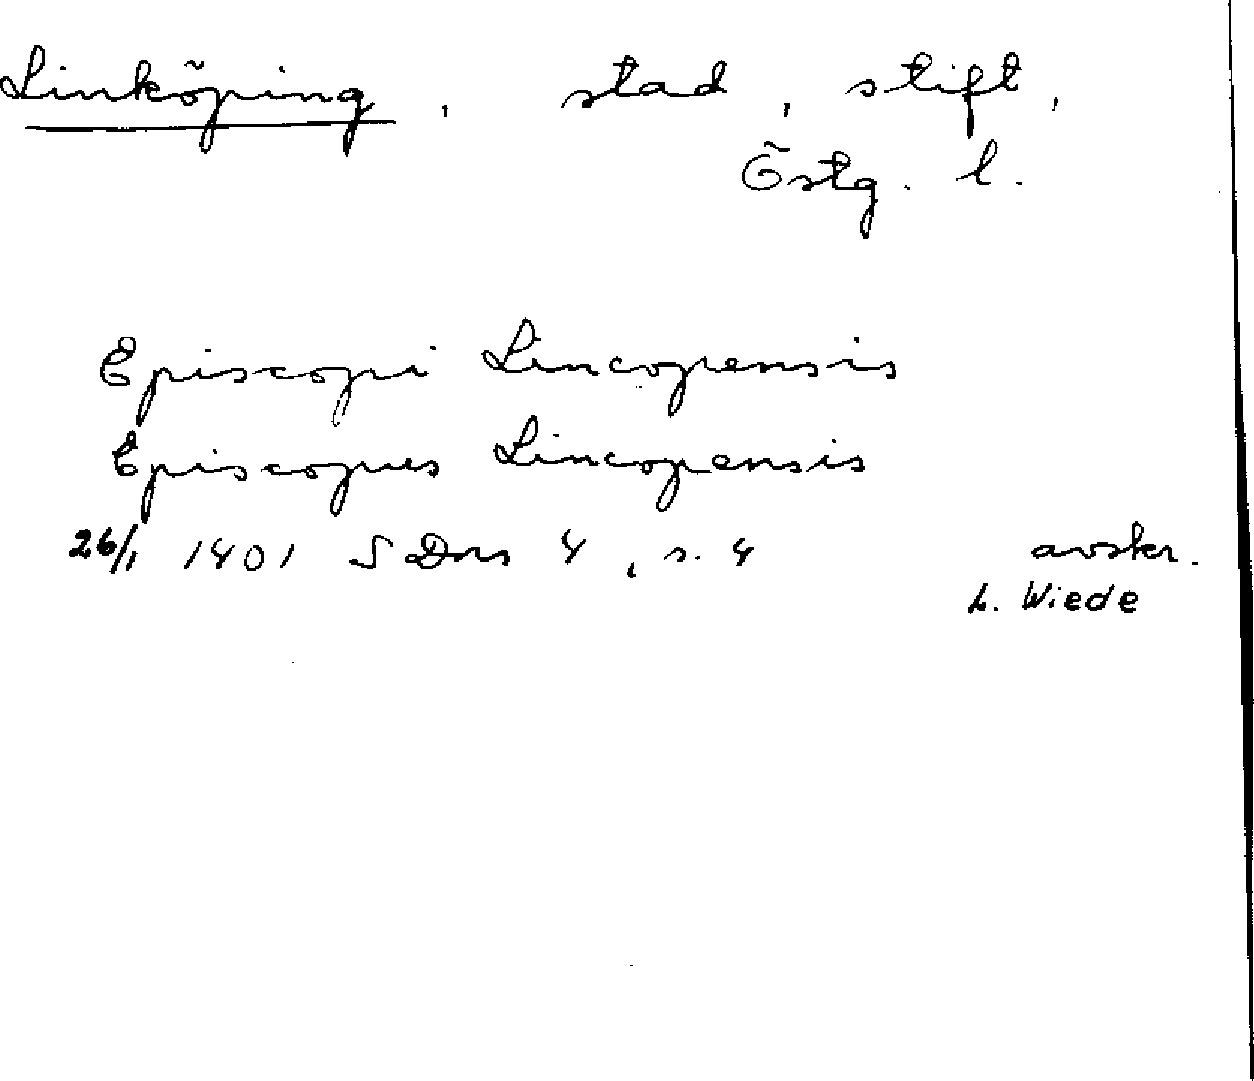 Linköping, stad, stift,
Östg. l.
Episcopi Lincopensis
Episcopus Lincopensis
26/1 1401 SDns 4, s. 4 avskr.
L. Wiede